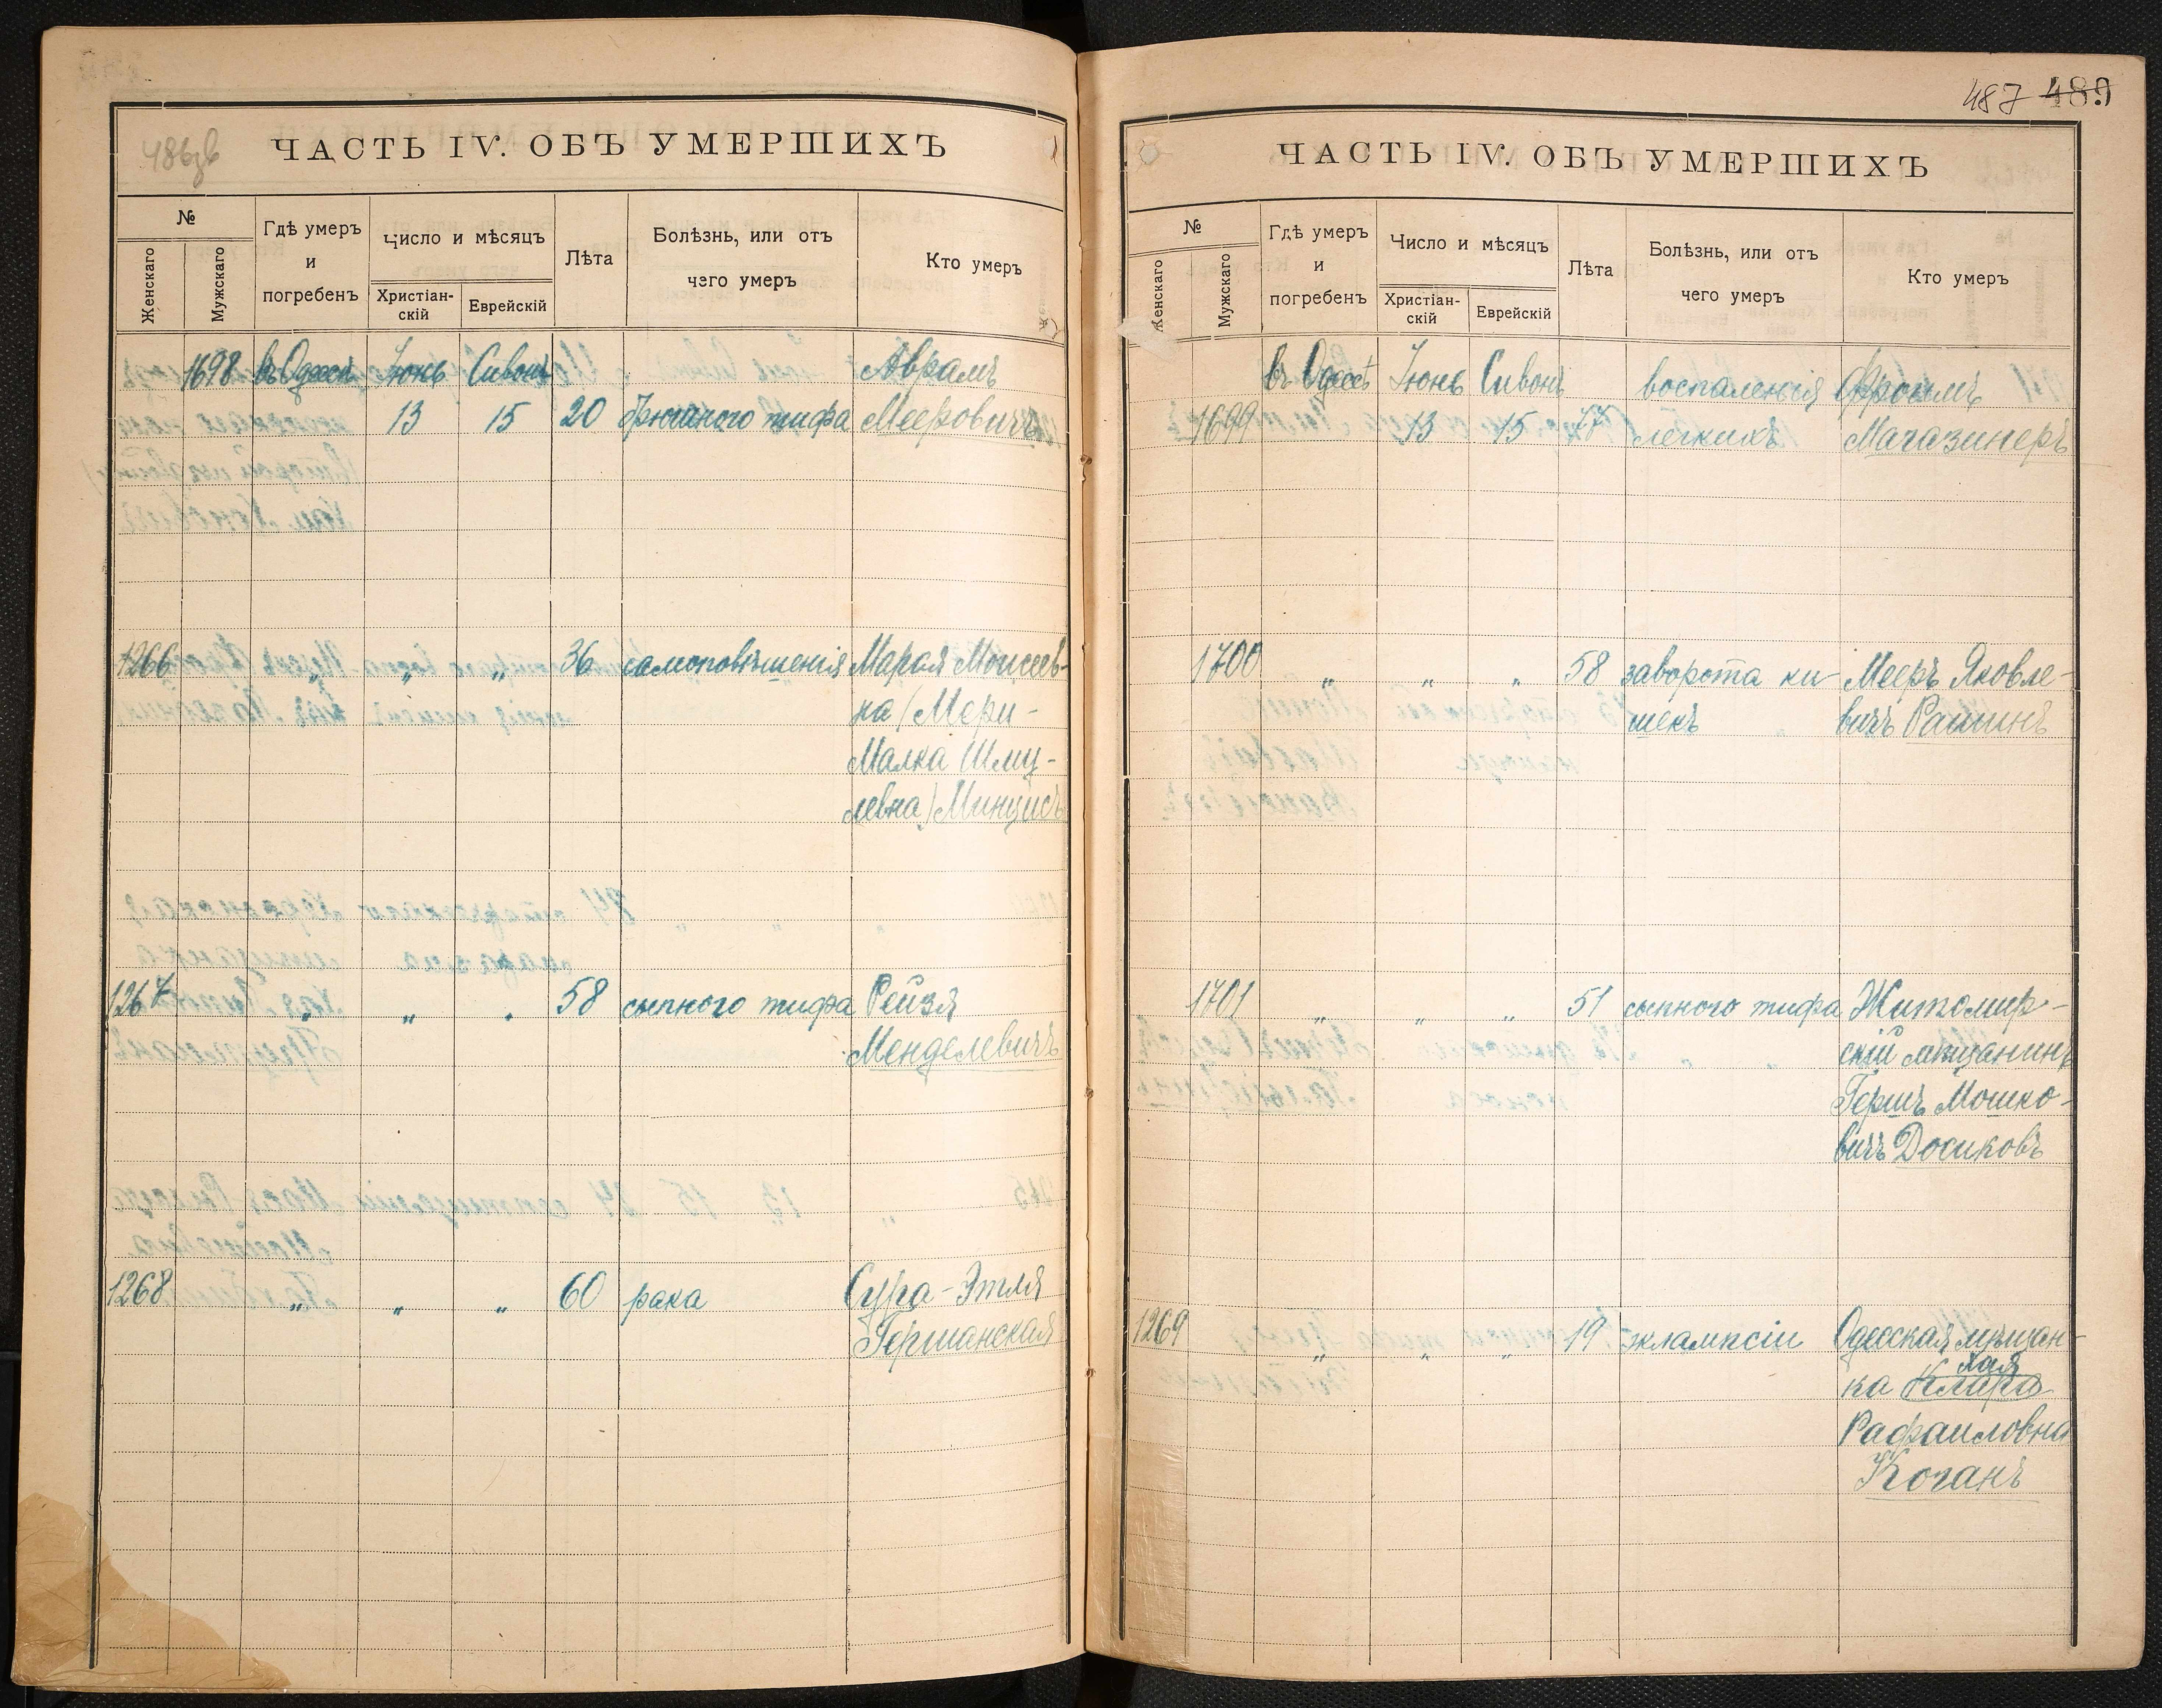 486зв
ЧАСТЬ IV. ОБЪ УМЕРШИХЪ
№
Женскаго
Мужскаго
Гдѣ умеръ
и
погребенъ
Число и мѣсяцъ
Христіан-
скій
Еврейскій
Лѣта
Болѣзнь, или отъ
чего умеръ
Кто умеръ
1698 въ Одессѣ Іюнь Сивонъ Аврамъ
13 15 20 брюшного тифа Мееровичъ
1266 „ „ „ 36 самоповѣшенія Марая Моисеев-
на (Мери-
Малка Шму-
левна) Минцисъ
1267 „ „ „ 58 сыпного тифа Рейзя
Менделевичъ
1268 „ „ „ 60 рака Сура-Этля
Гершанская
487 489
ЧАСТЬ IV. ОБЪ УМЕРШИХЪ
№
Женскаго
Мужскаго
Гдѣ умеръ
и
погребенъ
Число и мѣсяцъ
Христіан-
скій
Еврейскій
Лѣта
Болѣзнь, или отъ
чего умеръ
Кто умеръ
въ Одессѣ Іюнь Сивонъ воспаленія Фроимъ
1699 13 15 77 легкихъ Магазинеръ
1700 „ „ „ 58 заворота ки- Мееръ Яковле-
шекъ вичъ Рашинъ
1701 „ „ „ 51 сыпного тифа Житомир-
скій мѣщанинъ
Гершъ Мошко-
вичъ Досиковъ
1269 „ „ „ 19 эклампсіи Одесская мѣщан-
Хая
ка Клара
Рафаиловна
Коганъ